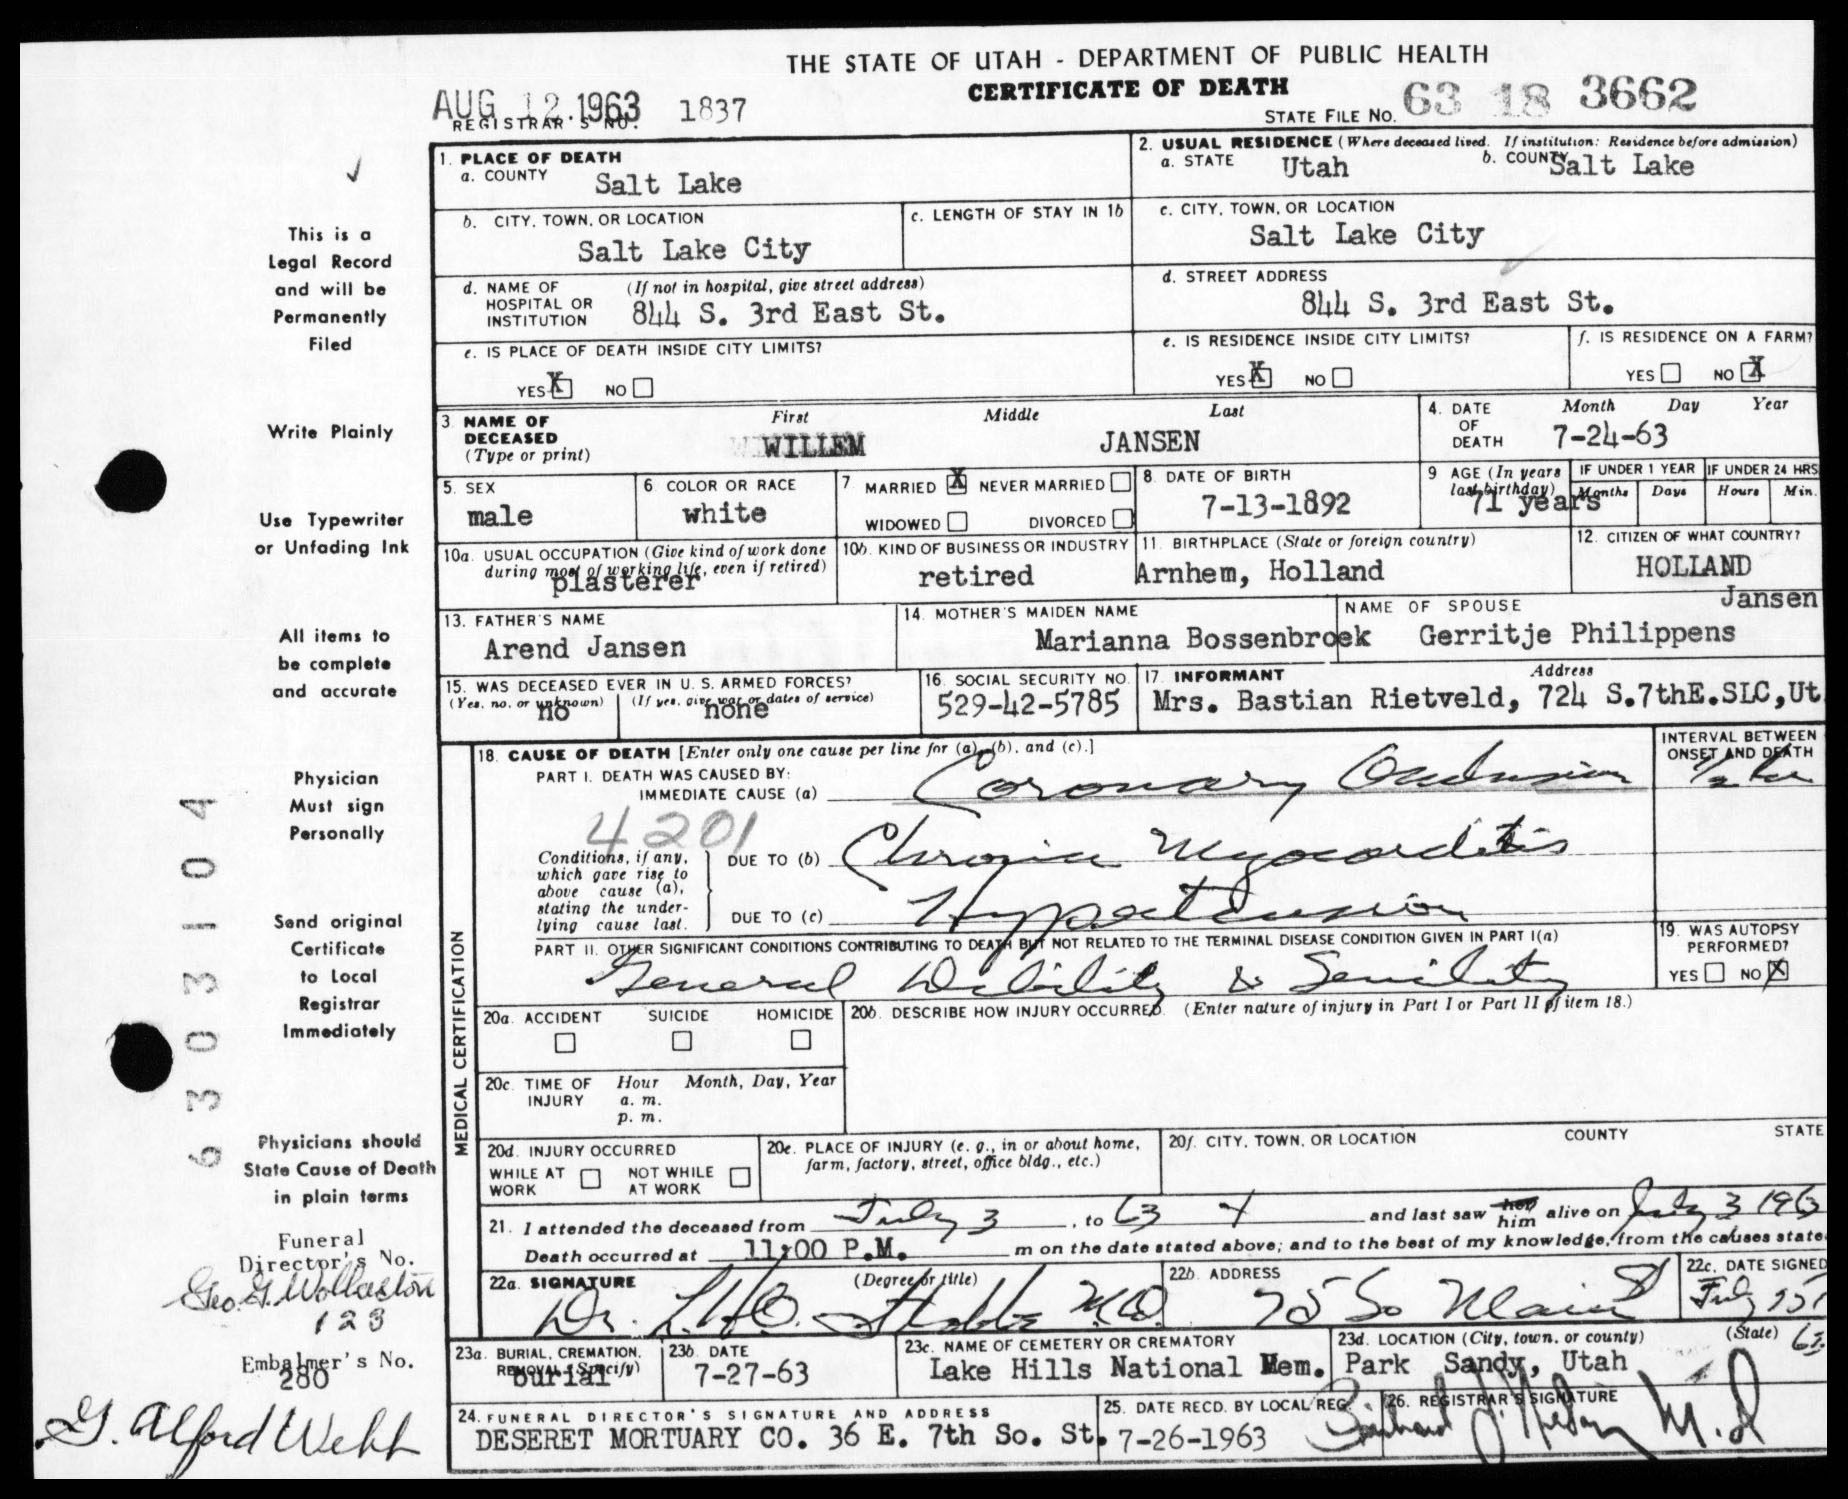 THE STATE OF UTAH - DEPARTMENT OF PUBLIC HEALTH
CERTIFICATE OF DEATH
AUG 12 1963 1837
REGISTRAR'S NO.
STATE FILE NO. 63 18 3662
1. PLACE OF DEATH
a. COUNTY Salt Lake
2. USUAL RESIDENCE (Where deceased lived. If institution: Residence before admission)
a. STATE Utah b. COUNTY Salt Lake
b. CITY, TOWN, OR LOCATION
Salt Lake City
c. LENGTH OF STAY IN 1b
c. CITY, TOWN, OR LOCATION
Salt Lake City
d. NAME OF HOSPITAL OR INSTITUTION (If not in hospital, give street address)
844 S. 3rd East St.
d. STREET ADDRESS
844 S. 3rd East St.
e. IS PLACE OF DEATH INSIDE CITY LIMITS?
YES X NO
e. IS RESIDENCE INSIDE CITY LIMITS?
YES X NO
f. IS RESIDENCE ON A FARM?
YES NO X
3. NAME OF DECEASED (Type or print)
First Middle Last
WILLEM JANSEN
4. DATE OF DEATH Month Day Year
7-24-63
5. SEX
male
6. COLOR OR RACE
white
7. MARRIED X NEVER MARRIED
WIDOWED DIVORCED
8. DATE OF BIRTH
7-13-1892
9. AGE (In years last birthday)
71 years
IF UNDER 1 YEAR
Months Days
IF UNDER 24 HRS
Hours Min.
10a. USUAL OCCUPATION (Give kind of work done during most of working life, even if retired)
plasterer
10b. KIND OF BUSINESS OR INDUSTRY
retired
11. BIRTHPLACE (State or foreign country)
Arnhem, Holland
12. CITIZEN OF WHAT COUNTRY?
HOLLAND
13. FATHER'S NAME
Arend Jansen
14. MOTHER'S MAIDEN NAME
Marianna Bossenbroek
NAME OF SPOUSE
Gerritje Philippens Jansen
15. WAS DECEASED EVER IN U. S. ARMED FORCES?
(Yes, no, or unknown) (If yes, give war or dates of service)
no none
16. SOCIAL SECURITY NO.
529-42-5785
17. INFORMANT Address
Mrs. Bastian Rietveld, 724 S.7thE.SLC,Ut
MEDICAL CERTIFICATION
18. CAUSE OF DEATH [Enter only one cause per line for (a), (b), and (c).]
INTERVAL BETWEEN ONSET AND DEATH
PART I. DEATH WAS CAUSED BY:
IMMEDIATE CAUSE (a) Coronary Occlusion 1/2 hr
4201
Conditions, if any, which gave rise to above cause (a), stating the underlying cause last.
DUE TO (b) Chronic Myocarditis
DUE TO (c) Hypertension
PART II. OTHER SIGNIFICANT CONDITIONS CONTRIBUTING TO DEATH BUT NOT RELATED TO THE TERMINAL DISEASE CONDITION GIVEN IN PART I(a)
General Debility & Senility
19. WAS AUTOPSY PERFORMED?
YES NO X
20a. ACCIDENT SUICIDE HOMICIDE
20b. DESCRIBE HOW INJURY OCCURRED. (Enter nature of injury in Part I or Part II of item 18.)
20c. TIME OF INJURY Hour Month, Day, Year
a. m.
p. m.
20d. INJURY OCCURRED
WHILE AT WORK NOT WHILE AT WORK
20e. PLACE OF INJURY (e. g., in or about home, farm, factory, street, office bldg., etc.)
20f. CITY, TOWN, OR LOCATION COUNTY STATE
21. I attended the deceased from July 3, to 63 and last saw her him alive on July 3 1963
Death occurred at 11:00 P.M. m on the date stated above; and to the best of my knowledge, from the causes state
22a. SIGNATURE (Degree or title)
Dr. M.D.
22b. ADDRESS
75 So Main St
22c. DATE SIGNED
July
63
23a. BURIAL, CREMATION, REMOVAL (Specify)
burial
23b. DATE
7-27-63
23c. NAME OF CEMETERY OR CREMATORY
Lake Hills National Mem. Park
23d. LOCATION (City, town, or county) (State)
Sandy, Utah
24. FUNERAL DIRECTOR'S SIGNATURE AND ADDRESS
DESERET MORTUARY CO. 36 E. 7th So. St.
25. DATE RECD. BY LOCAL REG.
7-26-1963
26. REGISTRAR'S SIGNATURE
M.D
This is a
Legal Record
and will be
Permanently
Filed
Write Plainly
Use Typewriter
or Unfading Ink
All items to
be complete
and accurate
Physician
Must sign
Personally
Send original
Certificate
to Local
Registrar
Immediately
Physicians should
State Cause of Death
in plain terms
Funeral
Director's No.
Geo. G. Wollaston
123
Embalmer's No.
280
G. Alford Webb
6303104